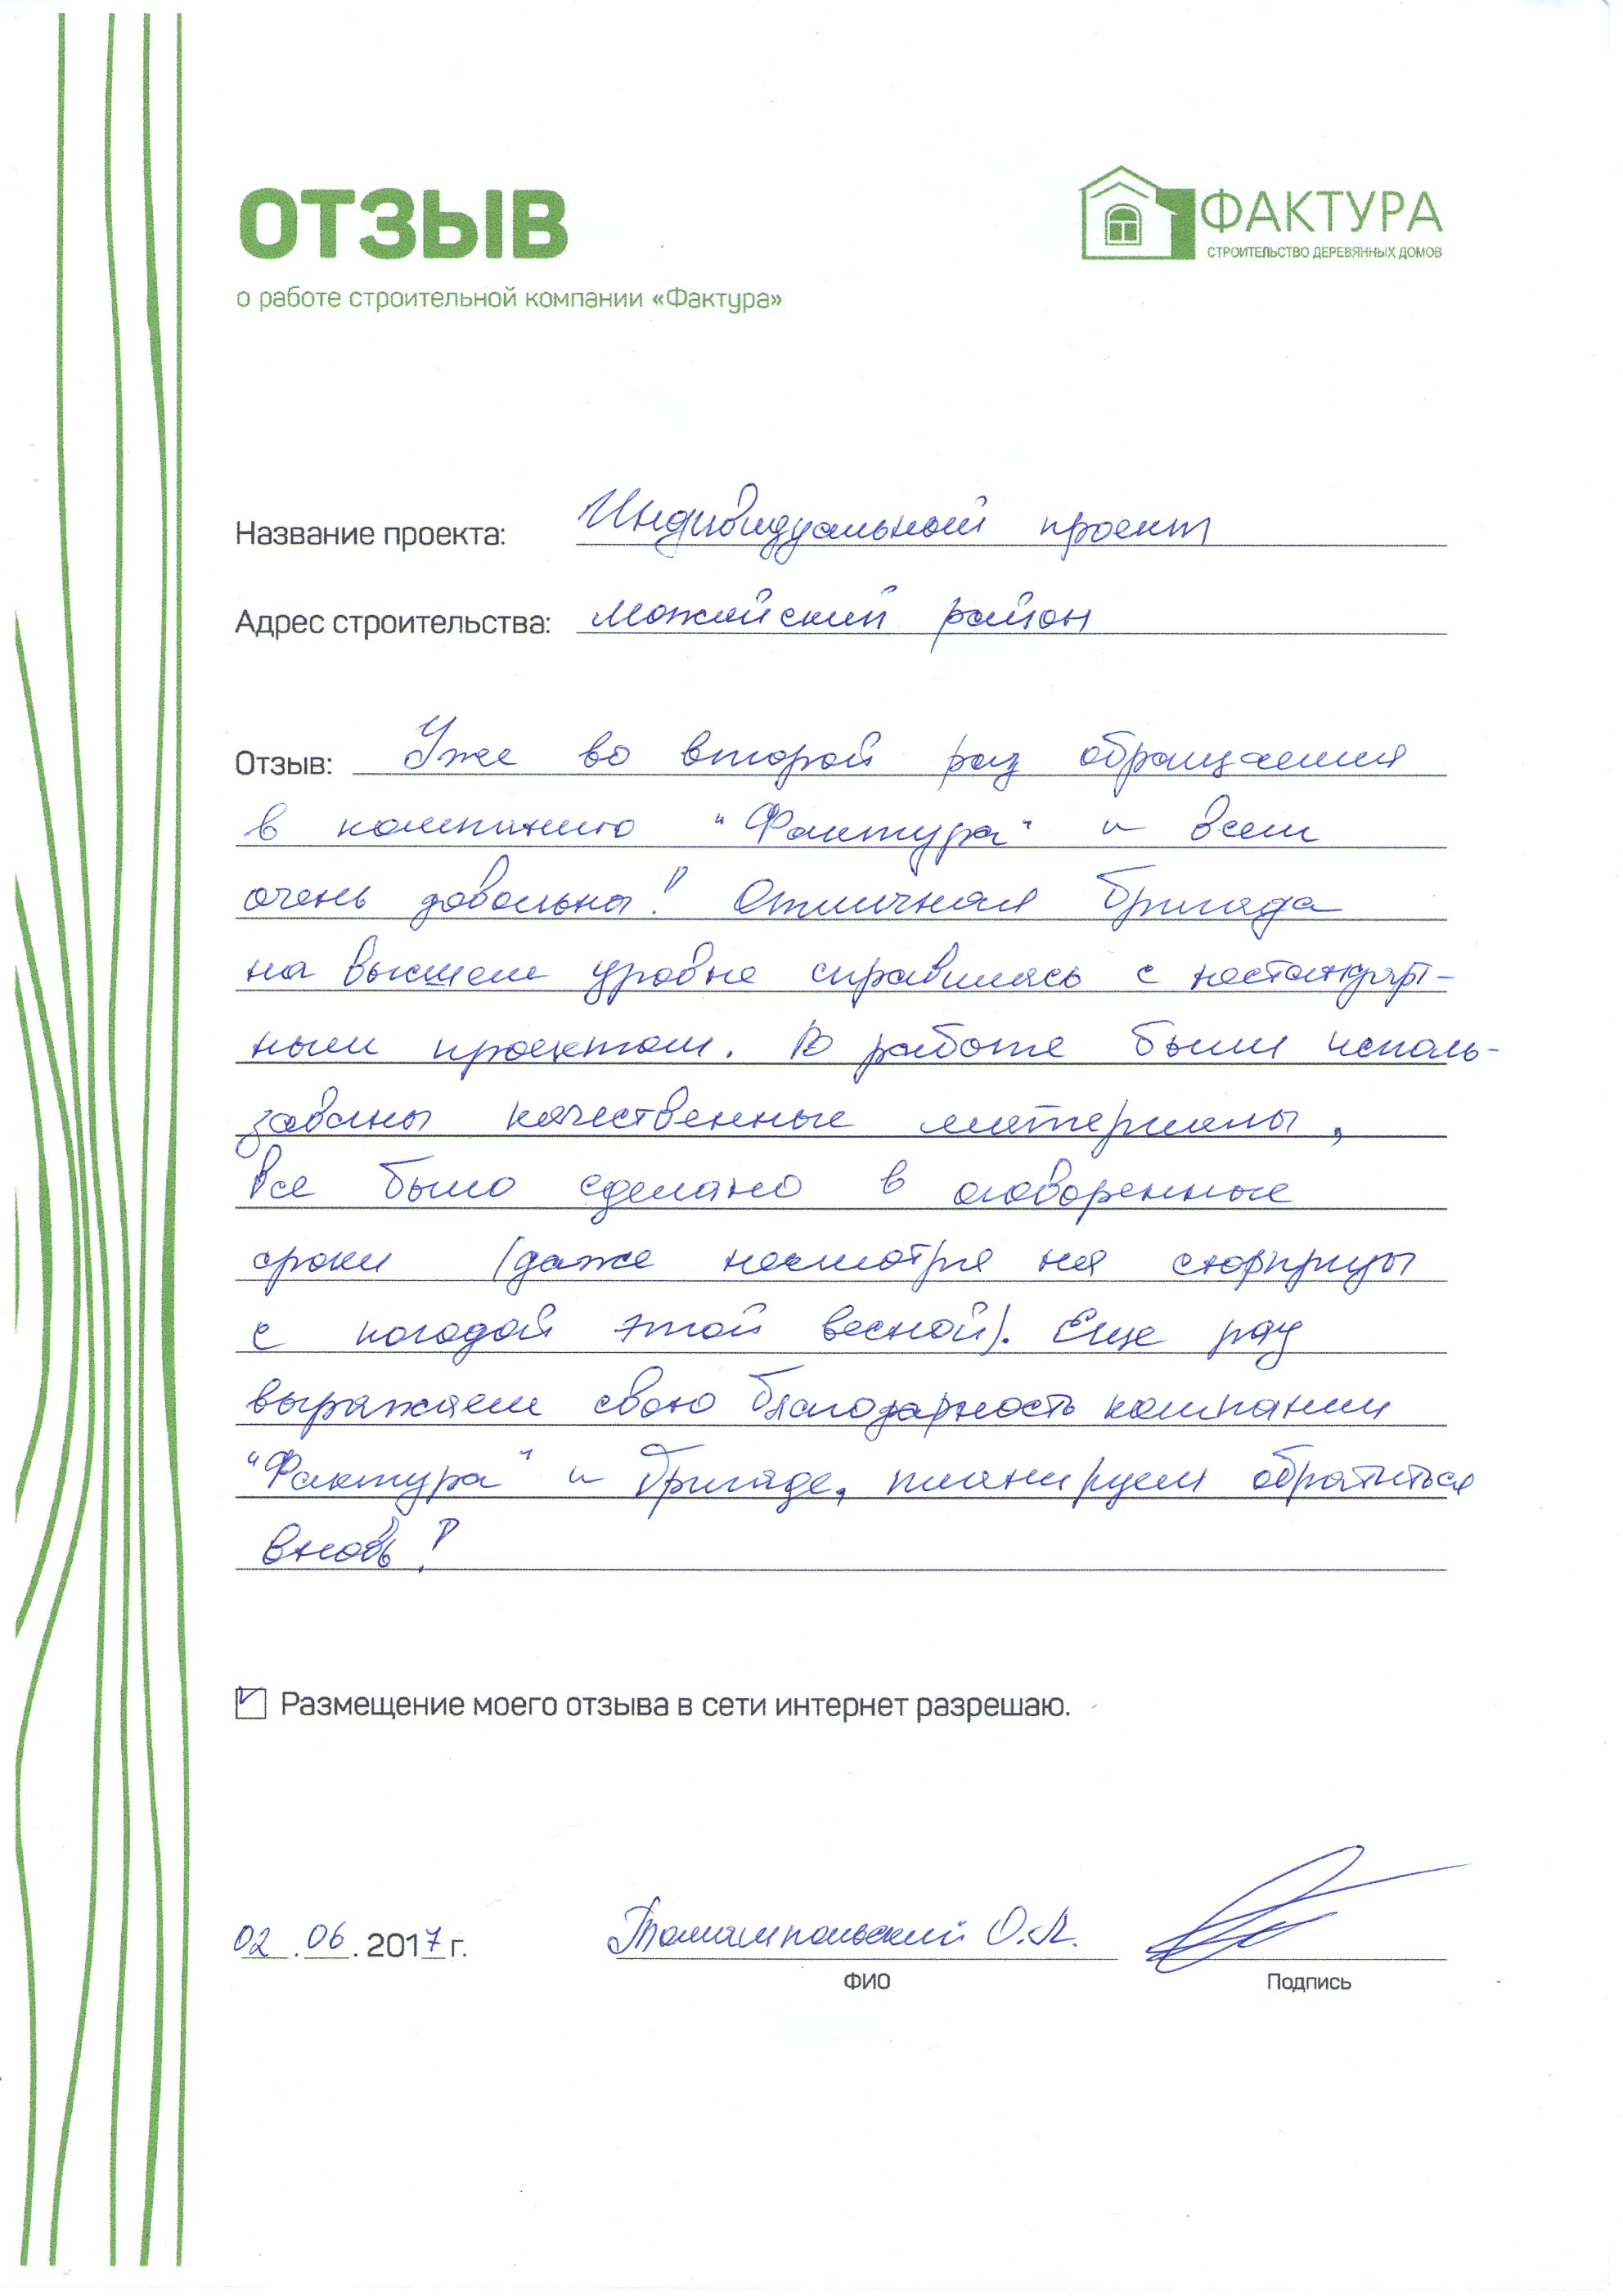 ОТЗЫВ
о работе строительной компании «Фактура»
ФАКТУРА
СТРОИТЕЛЬСТВО ДЕРЕВЯННЫХ ДОМОВ
Название проекта: Индивидуальный проект
Адрес строительства: Можайский район
Отзыв: Уже во второй раз обращаемся
в компанию "Фактура" и всем
очень довольны! Отличная бригада
на высшем уровне справилась с нестандарт-
ным проектом. В работе были исполь-
зованы качественные материалы,
все было сделано в оговоренные
сроки (даже несмотря на сюрпризы
с погодой этой весной). Еще раз
выражаем свою благодарность компании
"Фактура" и бригаде, планируем обратиться
вновь!
Размещение моего отзыва в сети интернет разрешаю.
02.06.2017 г. Томашпольский О.Л.
ФИО Подпись